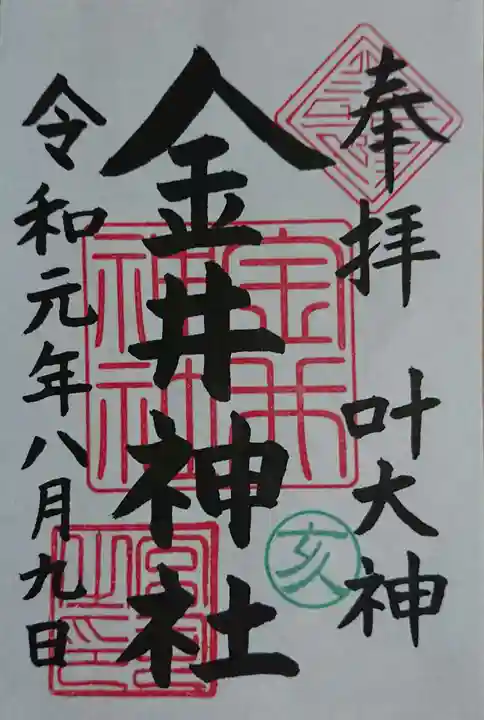 奉拝 叶大神
金井神社
令和元年八月九日
金井神社
亥
宮司之印